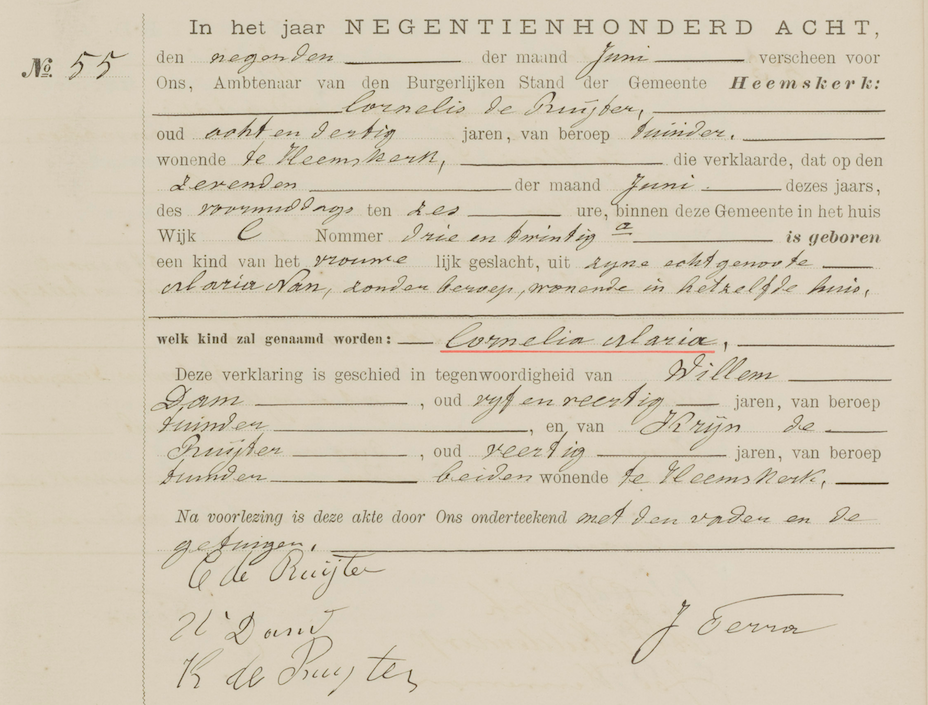 In het jaar NEGENTIENHONDERD ACHT,
No. 55
den negenden der maand Juni verscheen voor
Ons, Ambtenaar van den Burgerlijken Stand der Gemeente Heemskerk:
Cornelis de Ruijter,
oud acht en dertig jaren, van beroep tuinder,
wonende te Heemskerk, die verklaarde, dat op den
zevenden der maand Juni dezes jaars,
des voormiddags ten zes ure, binnen deze Gemeente in het huis
Wijk C Nommer drie en twintig a is geboren
een kind van het vrouwe lijk geslacht, uit zijne echtgenoote
Maria Nan, zonder beroep, wonende in hetzelfde huis,
welk kind zal genaamd worden: Cornelia Maria,
Deze verklaring is geschied in tegenwoordigheid van Willem
Dam, oud vijf en veertig jaren, van beroep
tuinder, en van Krijn de
Ruijter, oud veertig jaren, van beroep
tuinder beiden wonende te Heemskerk,
Na voorlezing is deze akte door Ons onderteekend met den vader en de
getuigen.
C de Ruijter
W Dam
J Terra
K de Ruyter